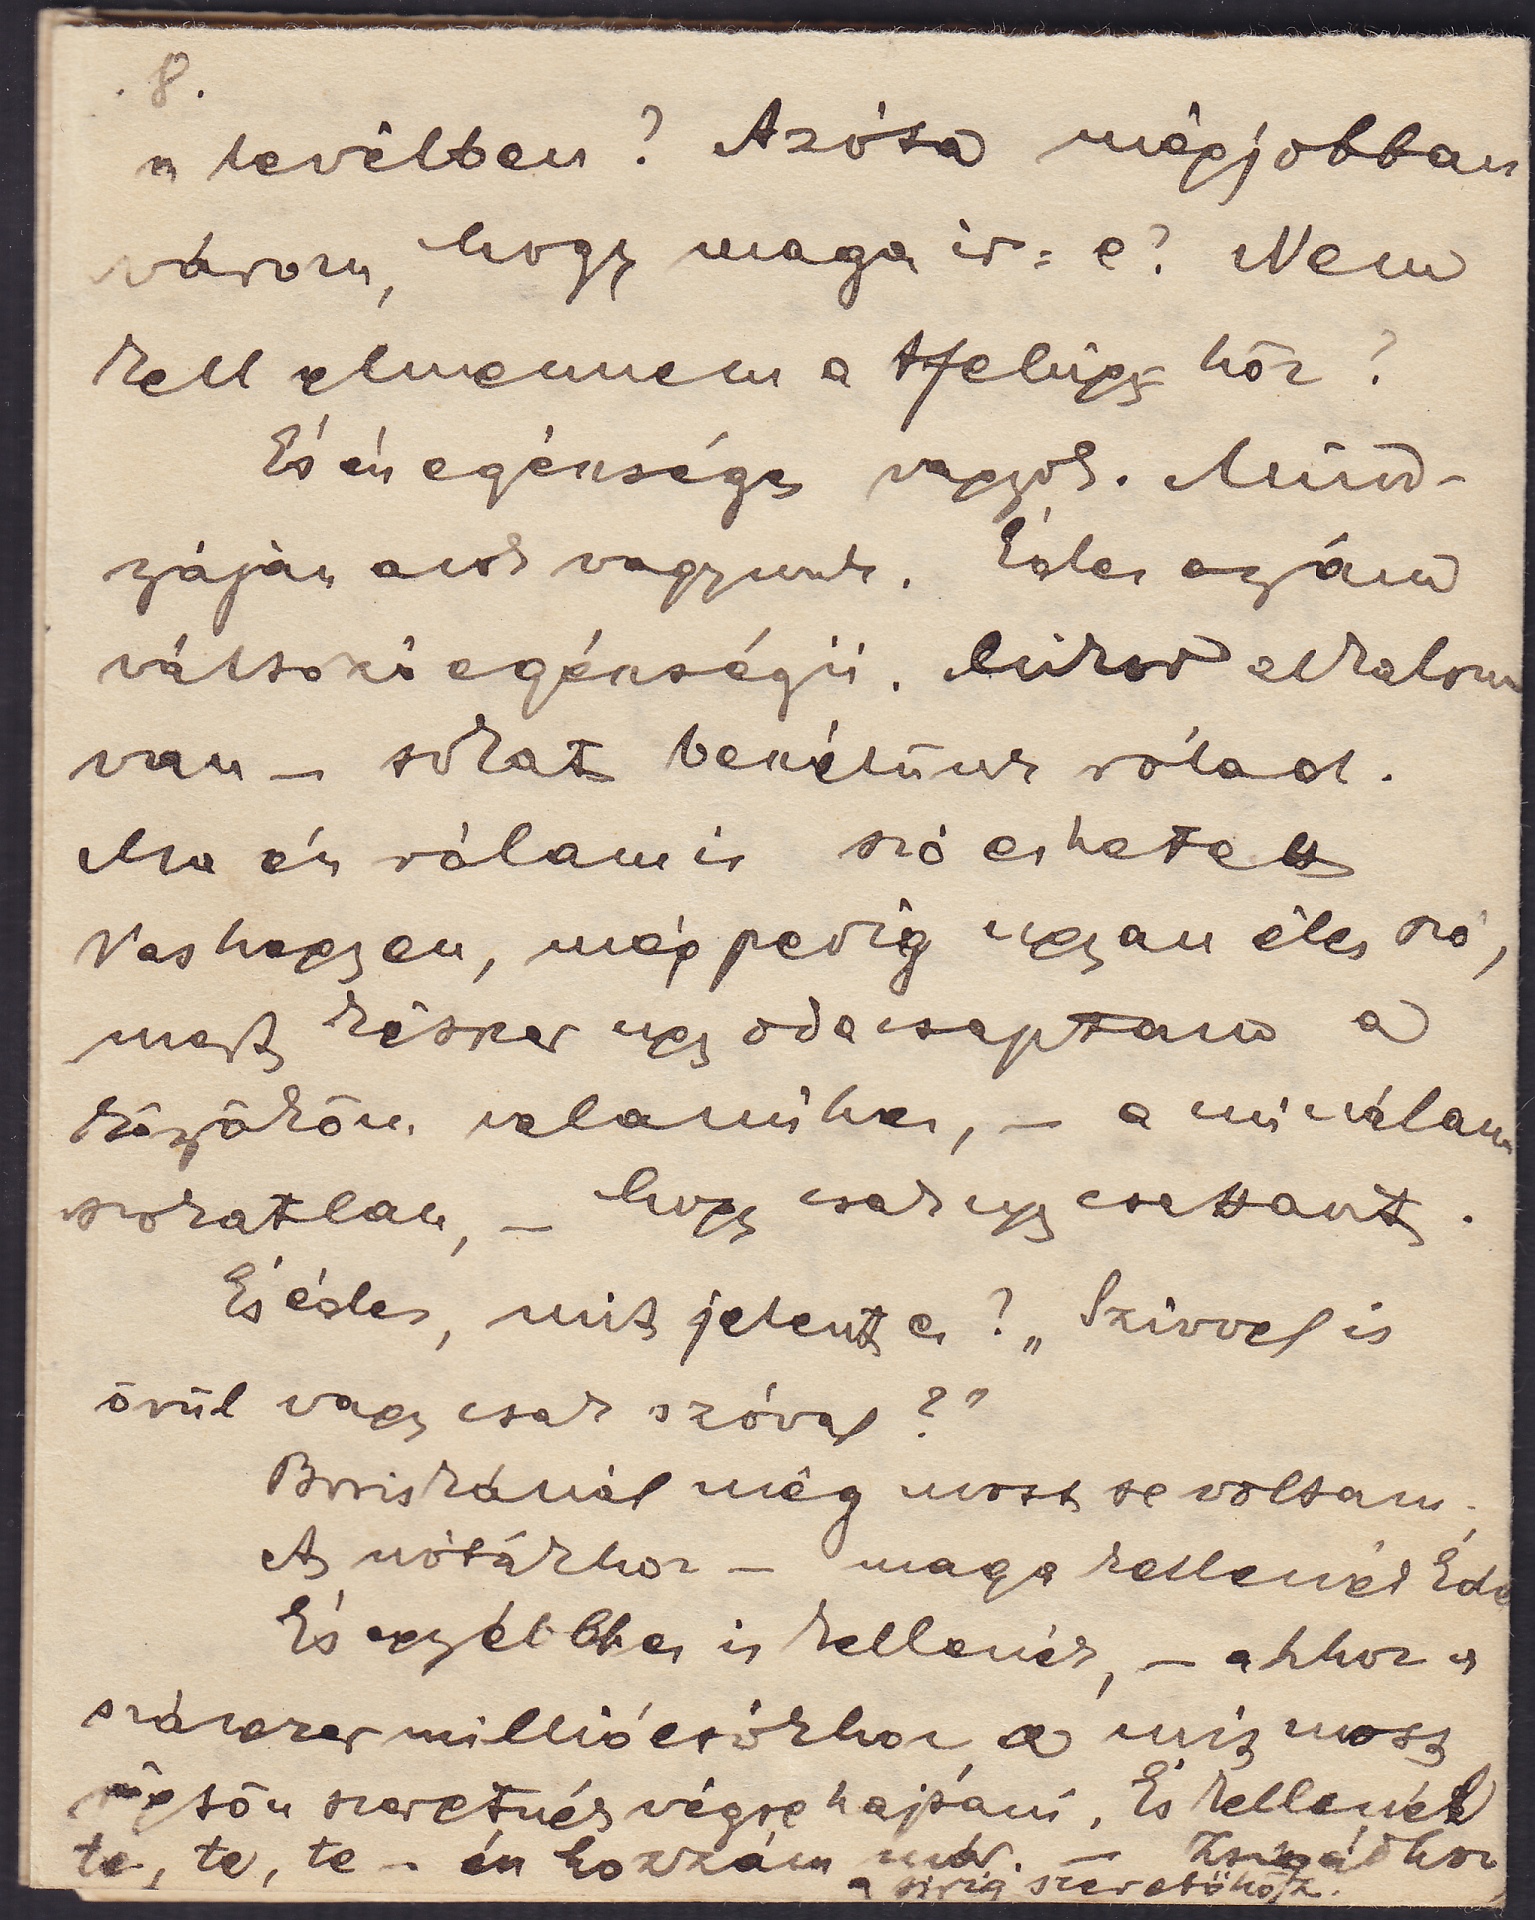 .8.
a levélben? Azóta mégjobban
várom, hogy maga ir=e? Nem
kell elmennem a tfelügy= höz?
És én egészséges vagyok. Mind-
nyáján azok vagyunk. Édes anyám
változó egészségü. Mikor alkalom
van — sokat beszélünk rólad.
Ma én rólam is szó eshetett
Vashegyen, még pedig ugyan éles szó,
mert kétszer ugy odacsaptam a
könyököm valamihez, — a mi nálam
szokatlan, — hogy csak ugy csattant.
És édes, mit jelent ez? „Szivvel is
örül vagy csak szóval?"
Boriskánál még most se voltam.
A nótákhoz — maga kellenék Édes
És egyébhez is kellenék, — ahhoz a
százezermilliócsókhoz a mit most
rögtön szeretnék végrehajtani. És kellenék
te, te, te — én hozzám már. —
a sirig szeretőhöz.